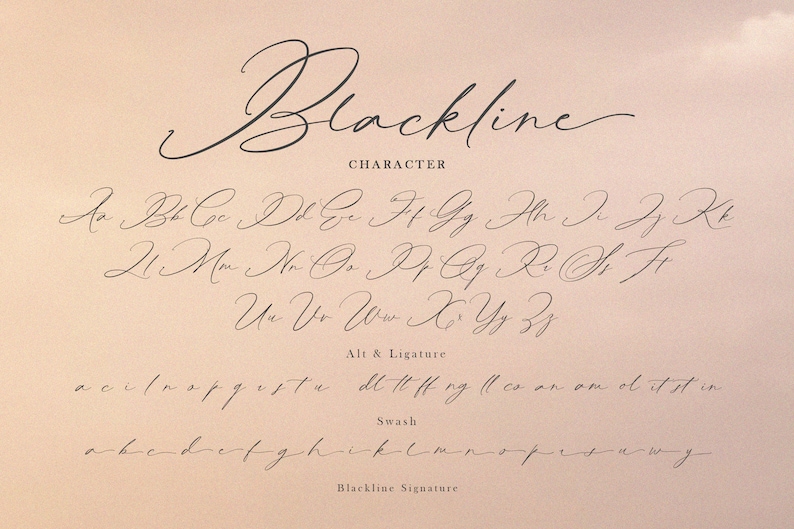 Blackline
CHARACTER
Aa Bb Cc Dd Ee Ff Gg Hh Ii Jj Kk
Ll Mm Nn Oo Pp Qq Rr Ss Tt
Uu Vv Ww Xx Yy Zz
Alt & Ligature
a c i l n o p q r s t u dl tt ff ng ll co an am ol it st in
Swash
a b c d e f g h i k l m n o p r s u w y
Blackline Signature